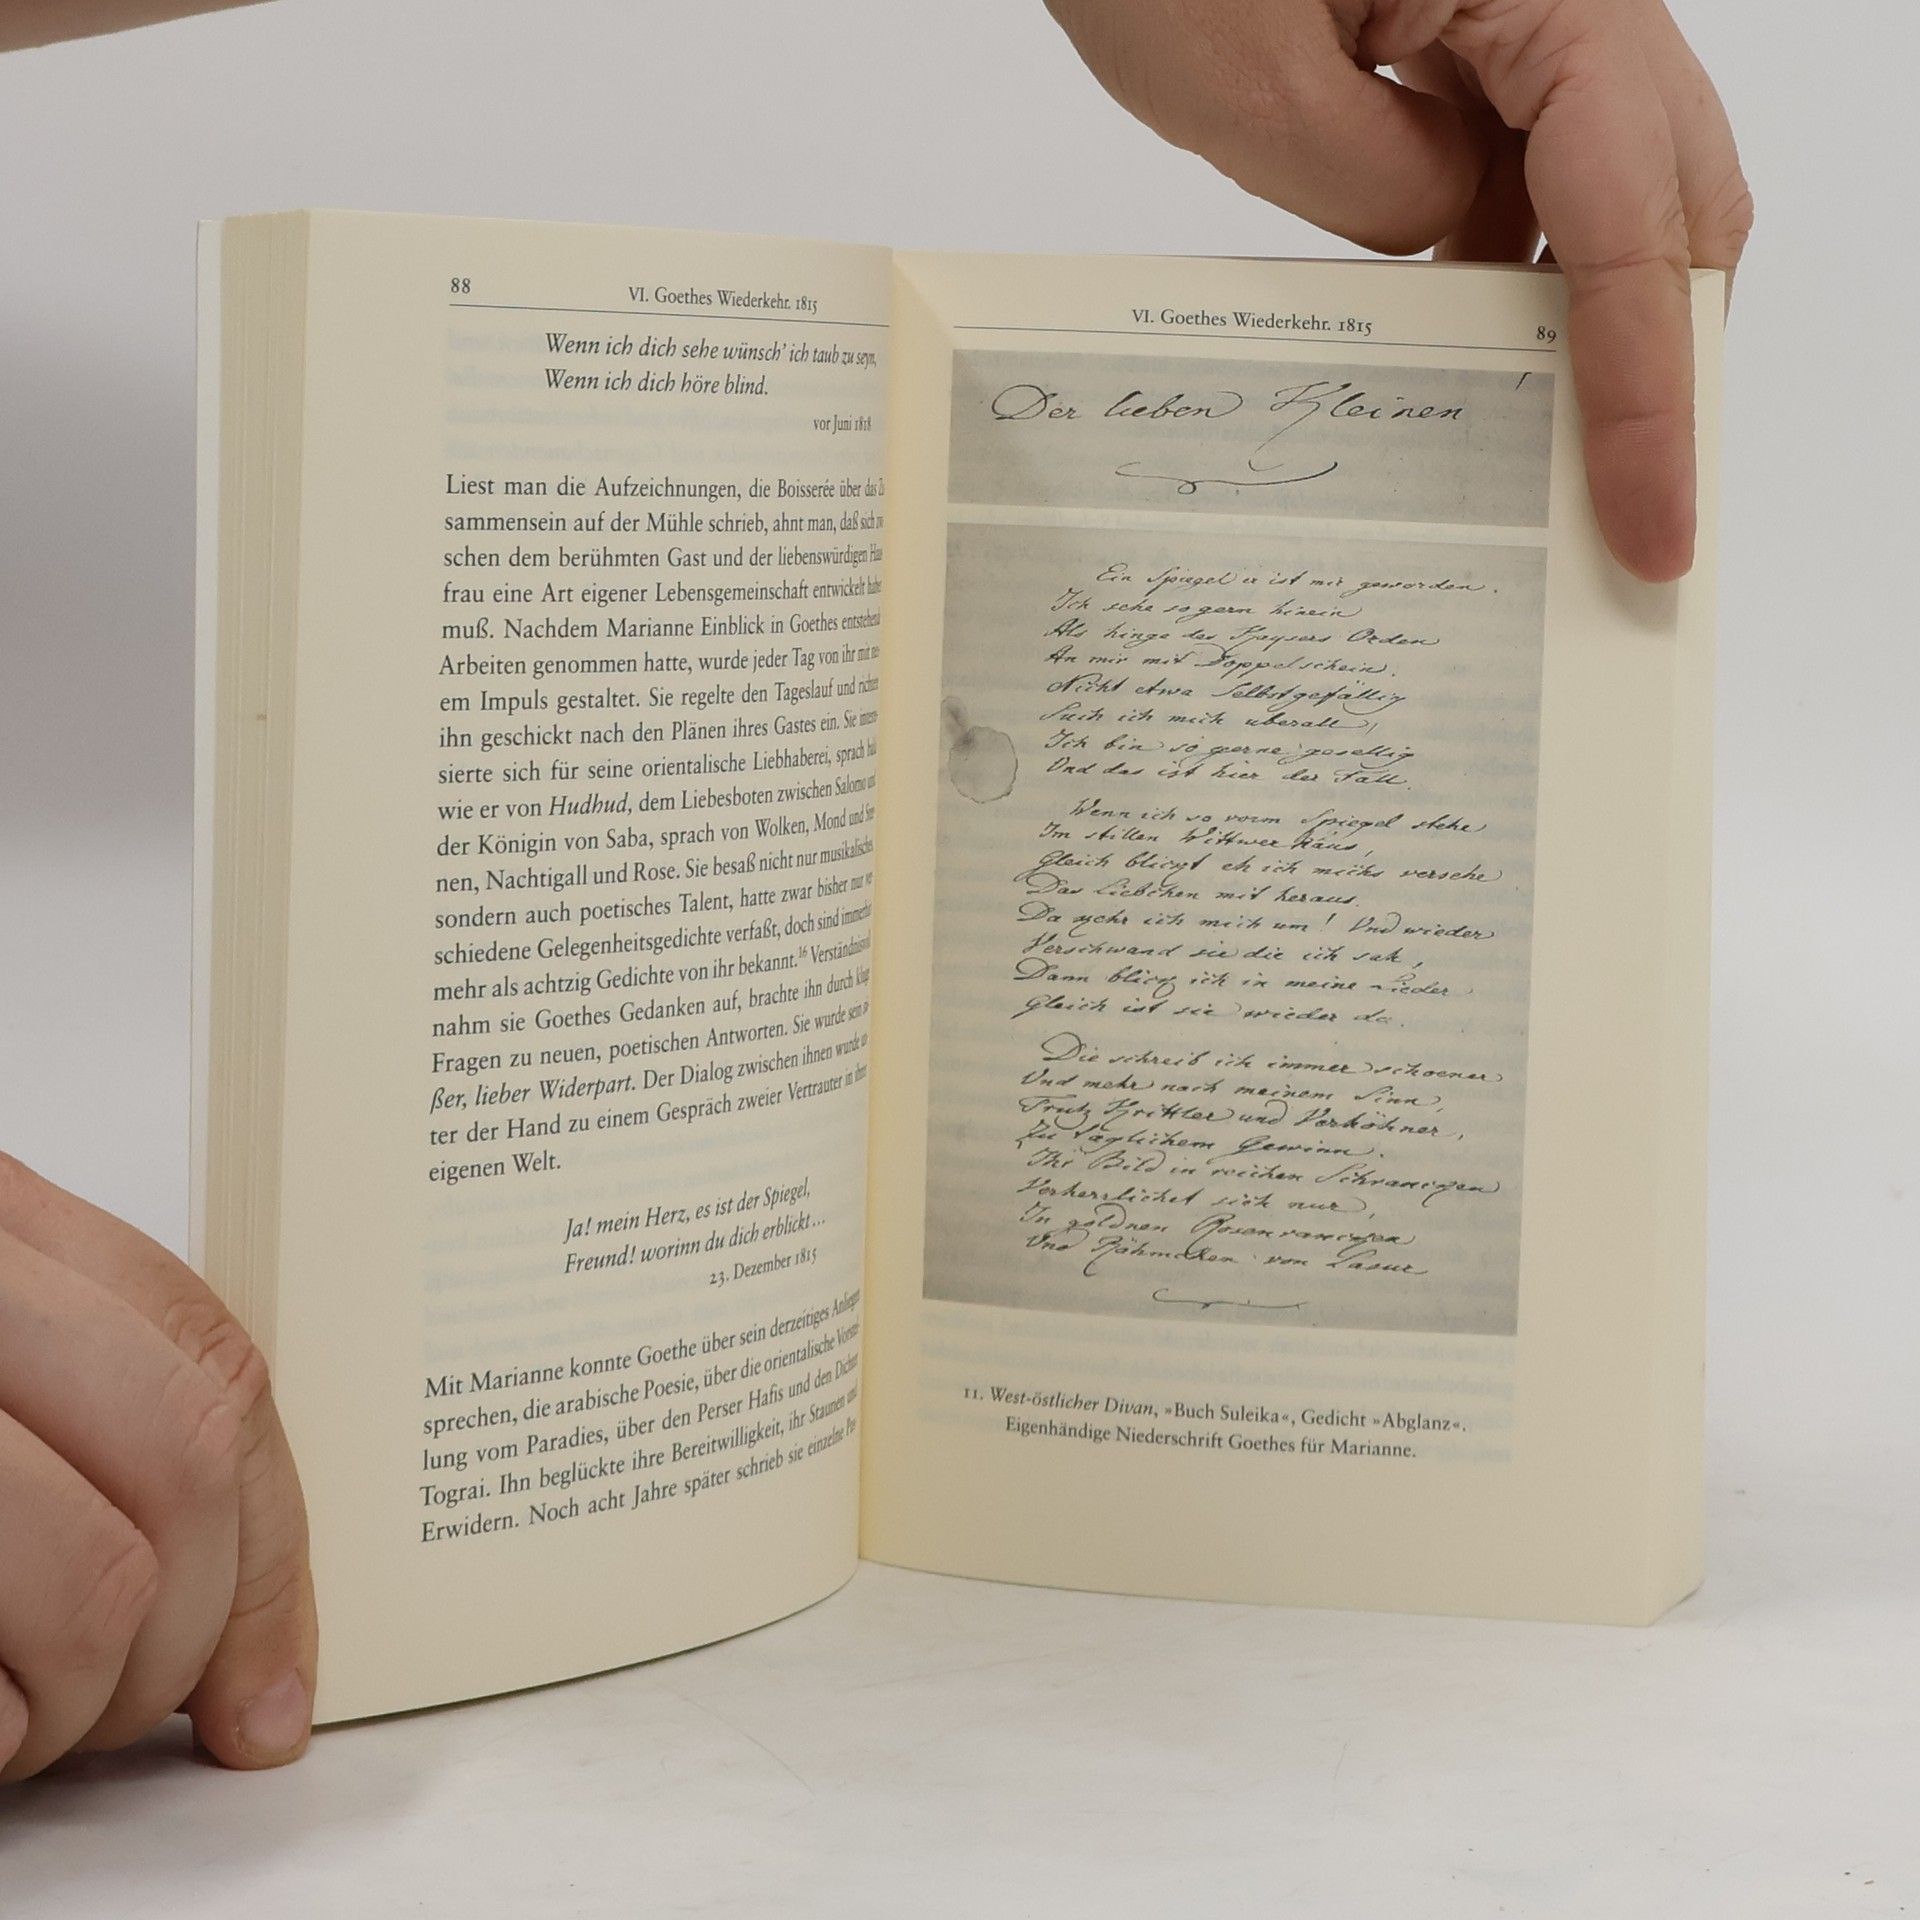 88
VI. Goethes Wiederkehr. 1815
Wenn ich dich sehe wünsch' ich taub zu seyn,
Wenn ich dich höre blind.
vor Juni 1818
Liest man die Aufzeichnungen, die Boisserée über das Zu
sammensein auf der Mühle schrieb, ahnt man, daß sich zwi
schen dem berühmten Gast und der liebenswürdigen Haus
frau eine Art eigener Lebensgemeinschaft entwickelt haben
muß. Nachdem Marianne Einblick in Goethes entstehende
Arbeiten genommen hatte, wurde jeder Tag von ihr mit neu
em Impuls gestaltet. Sie regelte den Tageslauf und richtete
ihn geschickt nach den Plänen ihres Gastes ein. Sie interes
sierte sich für seine orientalische Liebhaberei, sprach bald
wie er von Hudhud, dem Liebesboten zwischen Salomo und
der Königin von Saba, sprach von Wolken, Mond und Ster
nen, Nachtigall und Rose. Sie besaß nicht nur musikalisches
sondern auch poetisches Talent, hatte zwar bisher nur ver
schiedene Gelegenheitsgedichte verfaßt, doch sind immerhin
mehr als achtzig Gedichte von ihr bekannt.16 Verständnisvoll
nahm sie Goethes Gedanken auf, brachte ihn durch kluge
Fragen zu neuen, poetischen Antworten. Sie wurde sein sü
ßer, lieber Widerpart. Der Dialog zwischen ihnen wurde un
ter der Hand zu einem Gespräch zweier Vertrauter in ihrer
eigenen Welt.
Ja! mein Herz, es ist der Spiegel,
Freund! worinn du dich erblickt...
23. Dezember 1815
Mit Marianne konnte Goethe über sein derzeitiges Anliegen
sprechen, die arabische Poesie, über die orientalische Vorstel
lung vom Paradies, über den Perser Hafis und den Dichter
Tograi. Ihn beglückte ihre Bereitwilligkeit, ihr Staunen und
Erwidern. Noch acht Jahre später schrieb sie einzelne
VI. Goethes Wiederkehr. 1815
89
Der lieben Kleinen
Ein Spiegel er ist mir geworden.
Ich sehe so gern hinein
Als hinge des Kaysers Orden
An mir mit Doppelschein.
Nicht etwa selbstgefällig
Such ich mich uberall,
Ich bin so gerne gesellig
Und das ist hier der Fall.
Wenn ich so vorm Spiegel stehe
Im stillen Wittwer Haus,
Gleich blickt eh ich michs versehe
Das Liebchen mit heraus.
Da kehr ich mich um! Und wieder
Verschwand sie die ich sah,
Dann blick ich in meine Lieder
Gleich ist sie wieder da.
Die schreib ich immer schoener
Und mehr nach meinem Sinn,
Trutz Krittler und Verhöhner,
Zu täglichem Gewinn.
Ihr Bild in reichen Schrancken
Verherrlichet sich nur,
In goldnen Rosenrancken
Und Rähmchen von Lasur
11. West-östlicher Divan, »Buch Suleika«, Gedicht »Abglanz«.
Eigenhändige Niederschrift Goethes für Marianne.